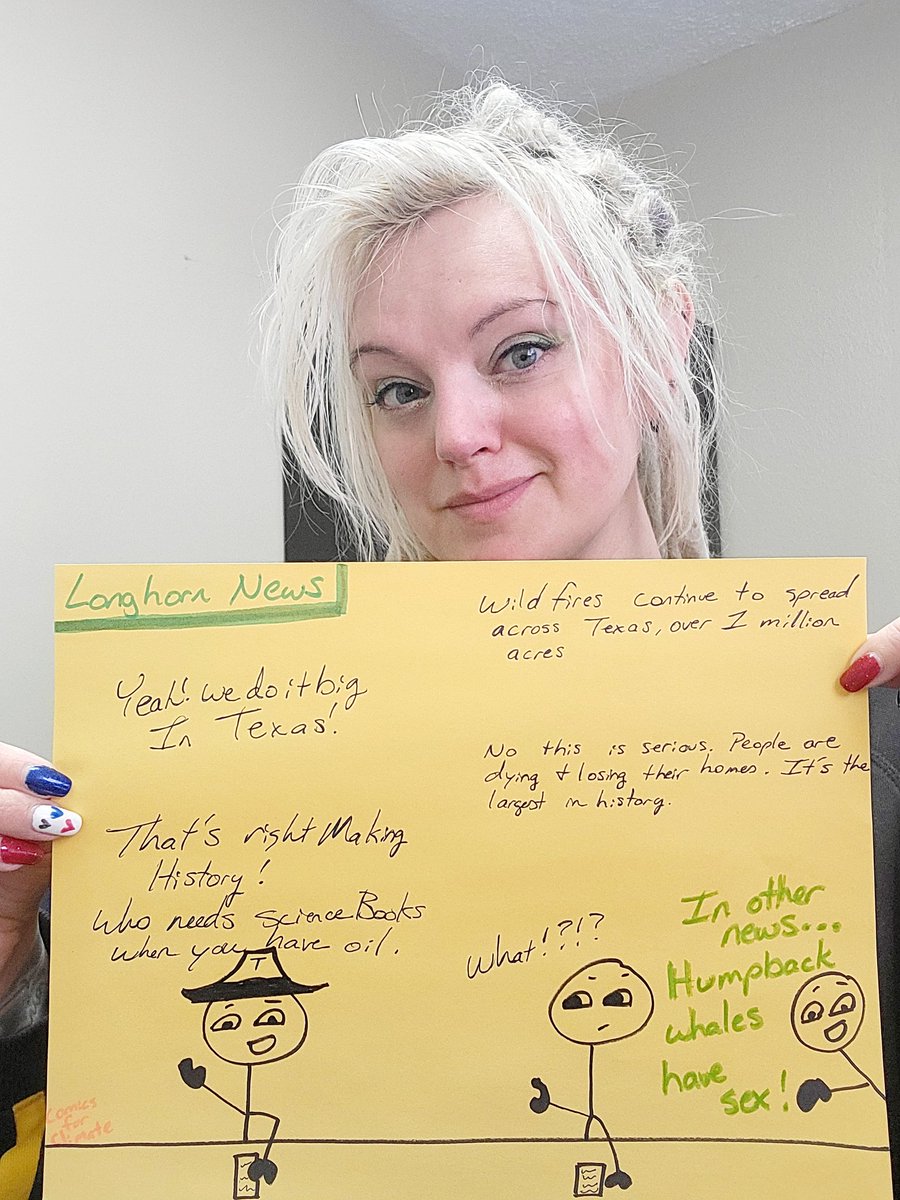 Longhorn News
Wild fires continue to spread
across Texas, over 1 million
acres
Yeah! we do it big
In Texas!
No this is serious. People are
dying & losing their homes. It's the
largest in history.
That's right Making
History!
Who needs science Books
when you have oil.
What!?!?
In other
news...
Humpback
whales
have
sex!
T
Comics
for
Climate